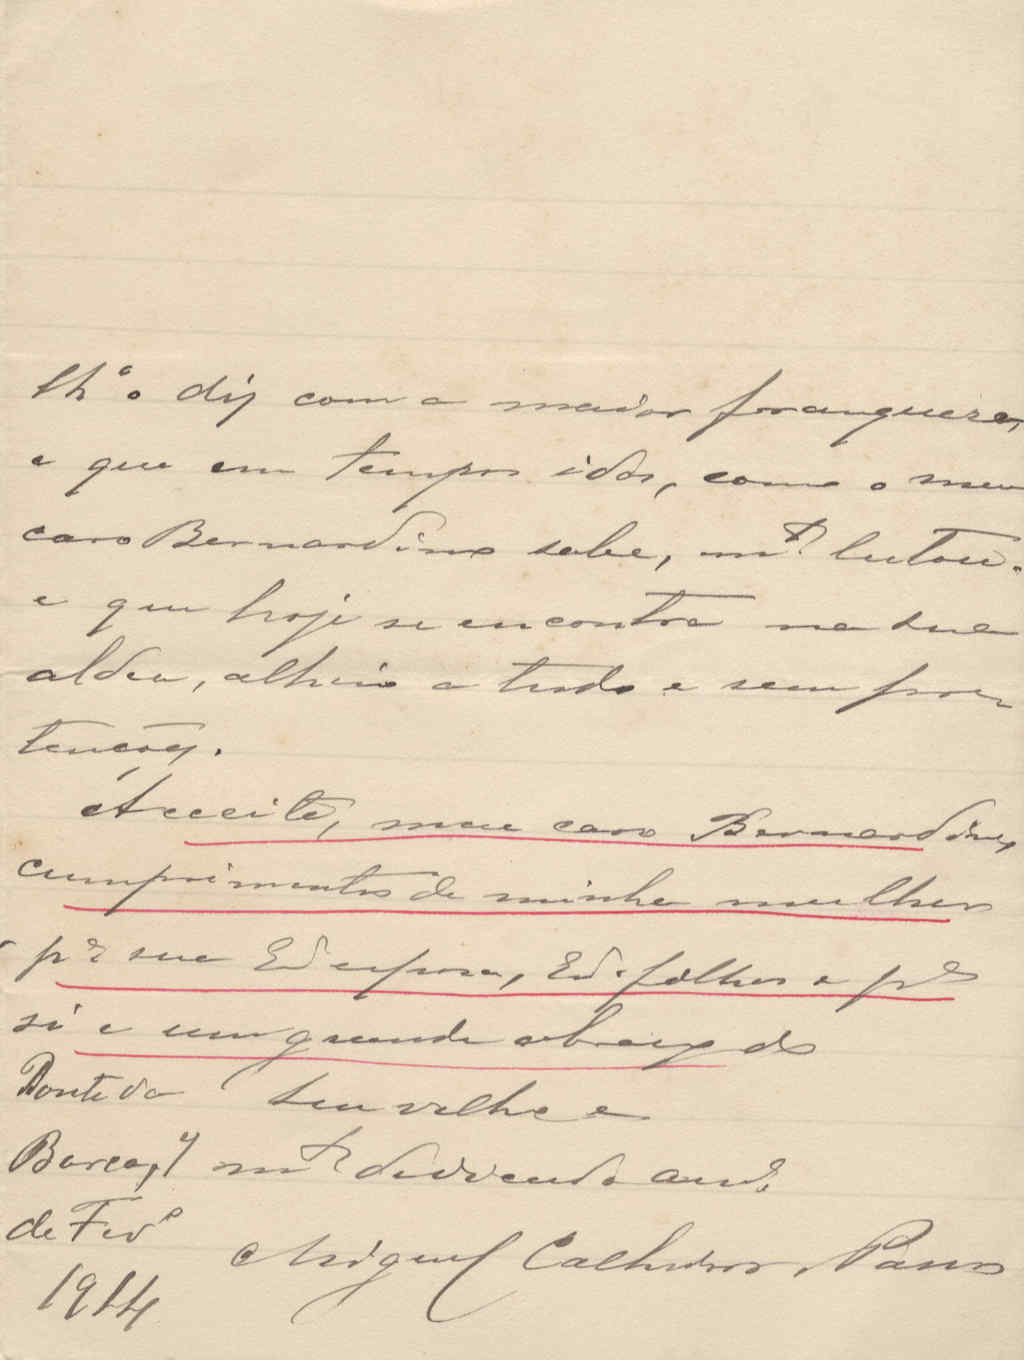 lh'o diz com a maior franqueza,
e que em tempos idos, como o meu
caro Bernardino sabe, mt.º lutou
e que hoje se encontra na sua
aldea, alheio a tudo e sem pre-
tenções.
Acceite, meu caro Bernardino,
cumprimentos de minha mulher
pª sua Esposa, filhos e pª
si e um grande abraço do
Ponte da seu velho e
Barca, mt.º am.º
de Fevº Miguel
1914